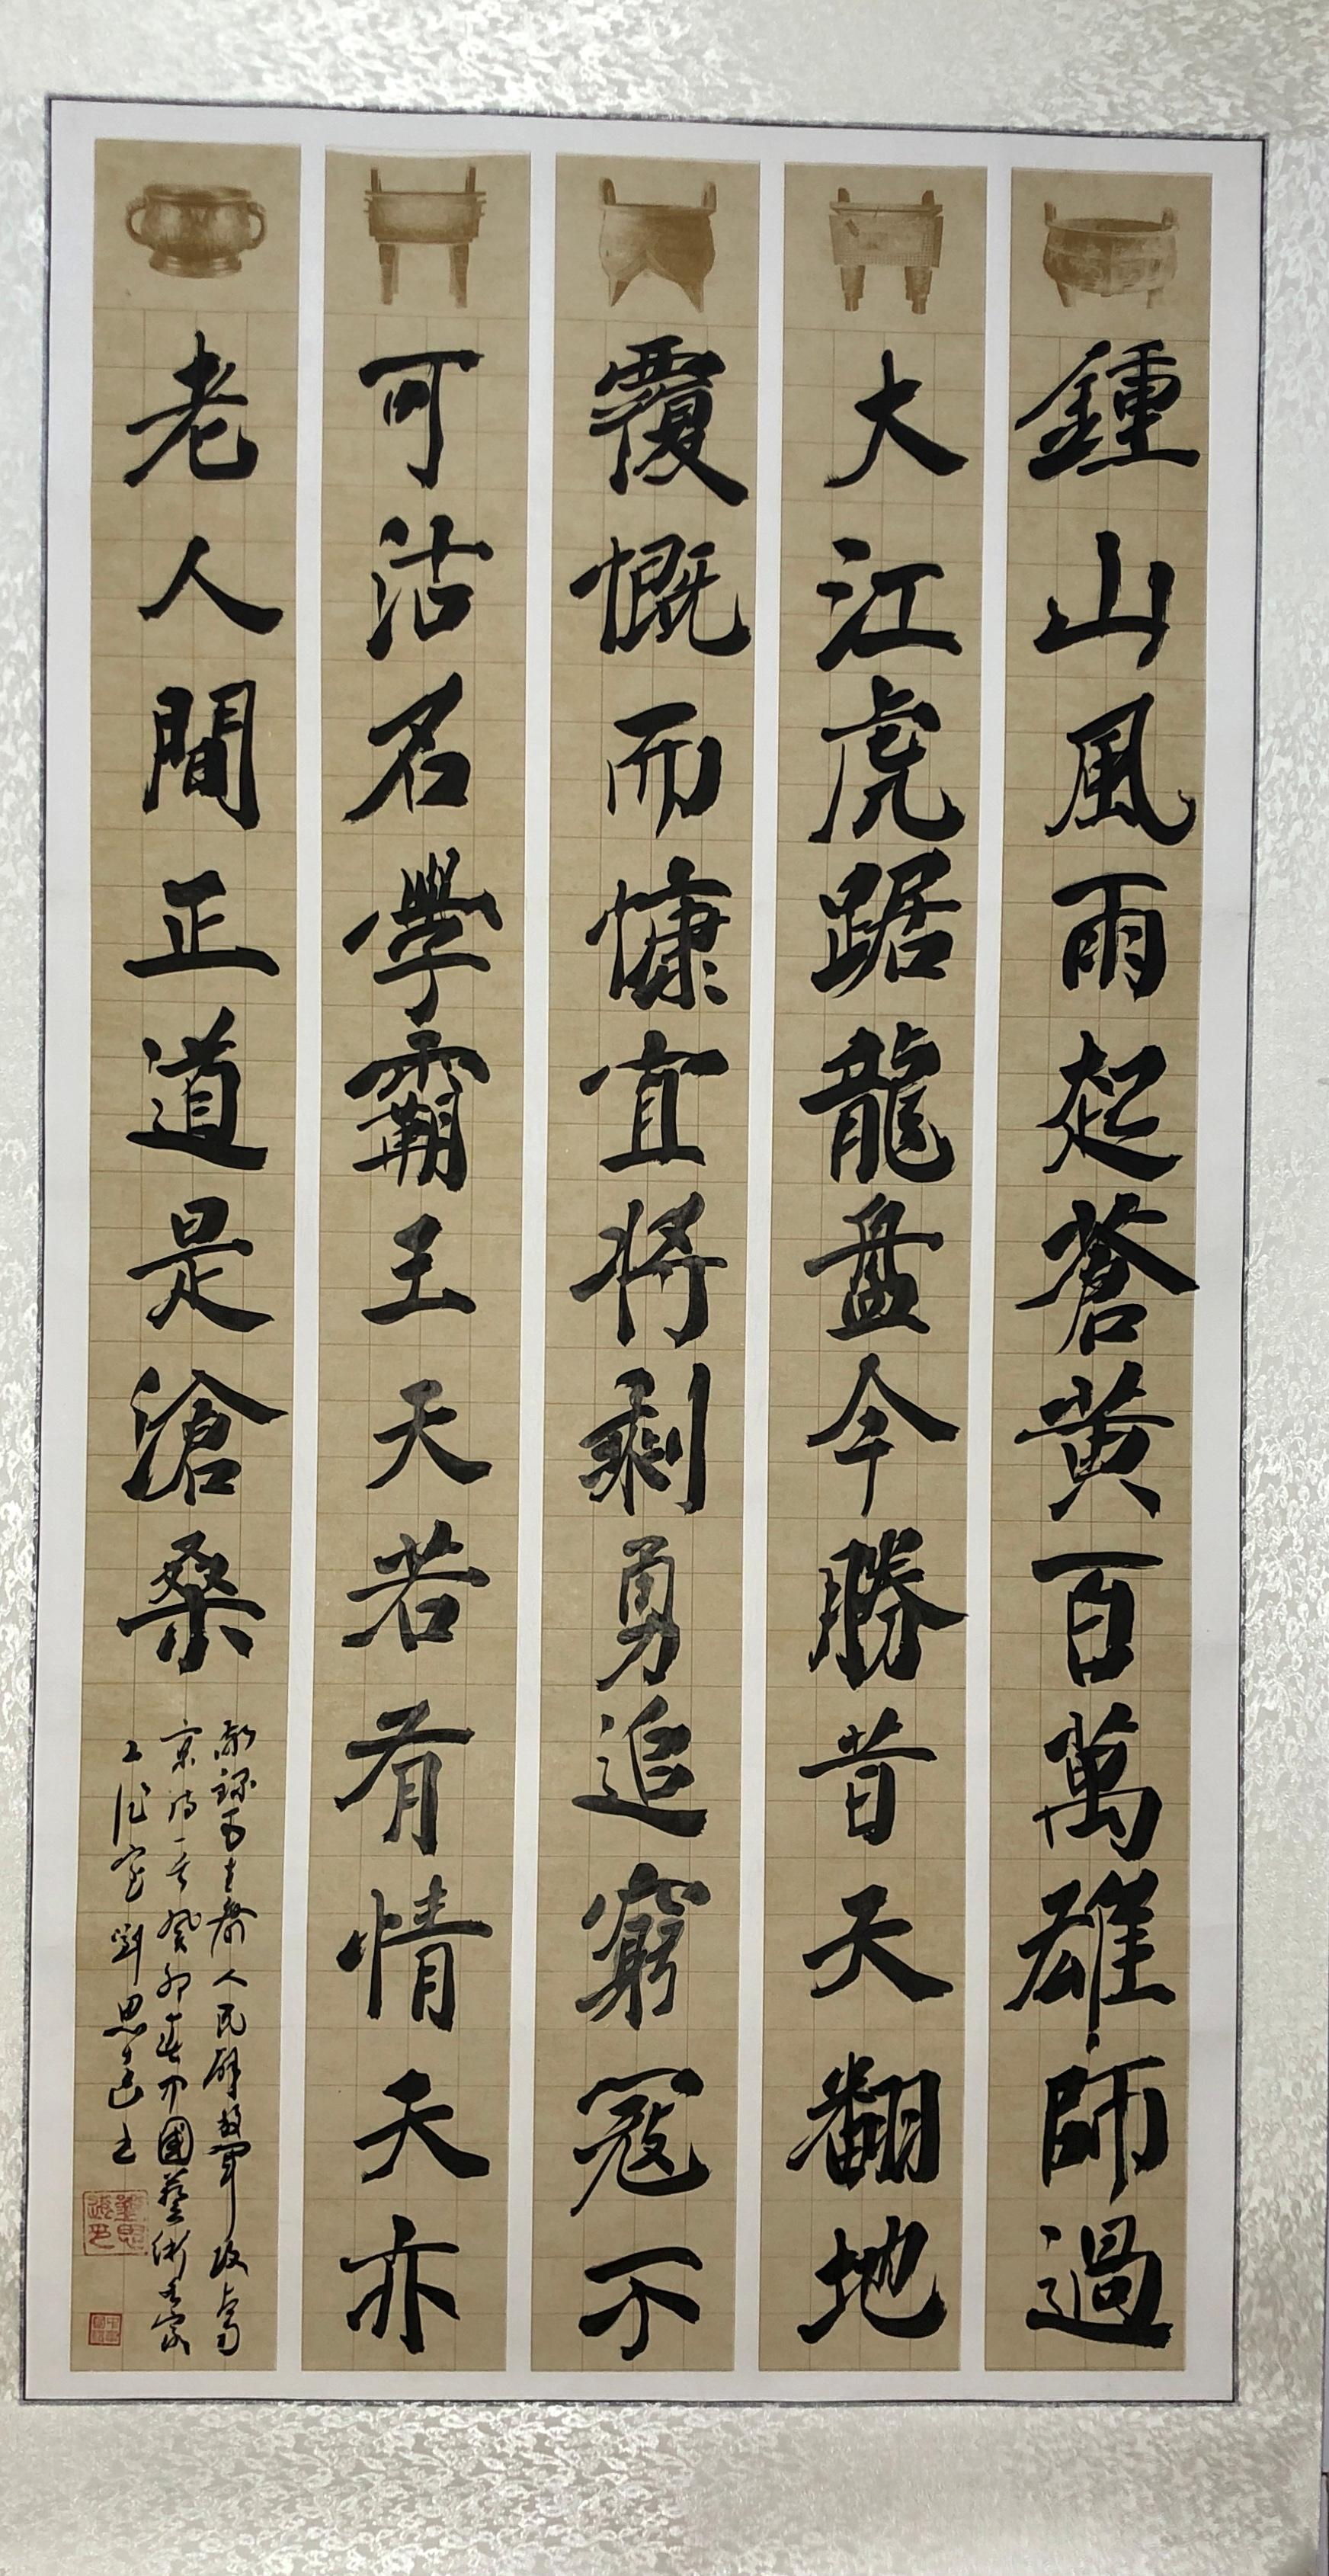 鍾山風雨起蒼黃百萬雄師過
大江虎踞龍盘今勝昔天翻地
覆慨而慷宜将剩勇追窮寇不
可沽名學霸王天若有情天亦
老人間正道是滄桑
敬錄毛主席人民解放軍佔領南
京詩一首癸卯春中國藝術名家
工作室劉思